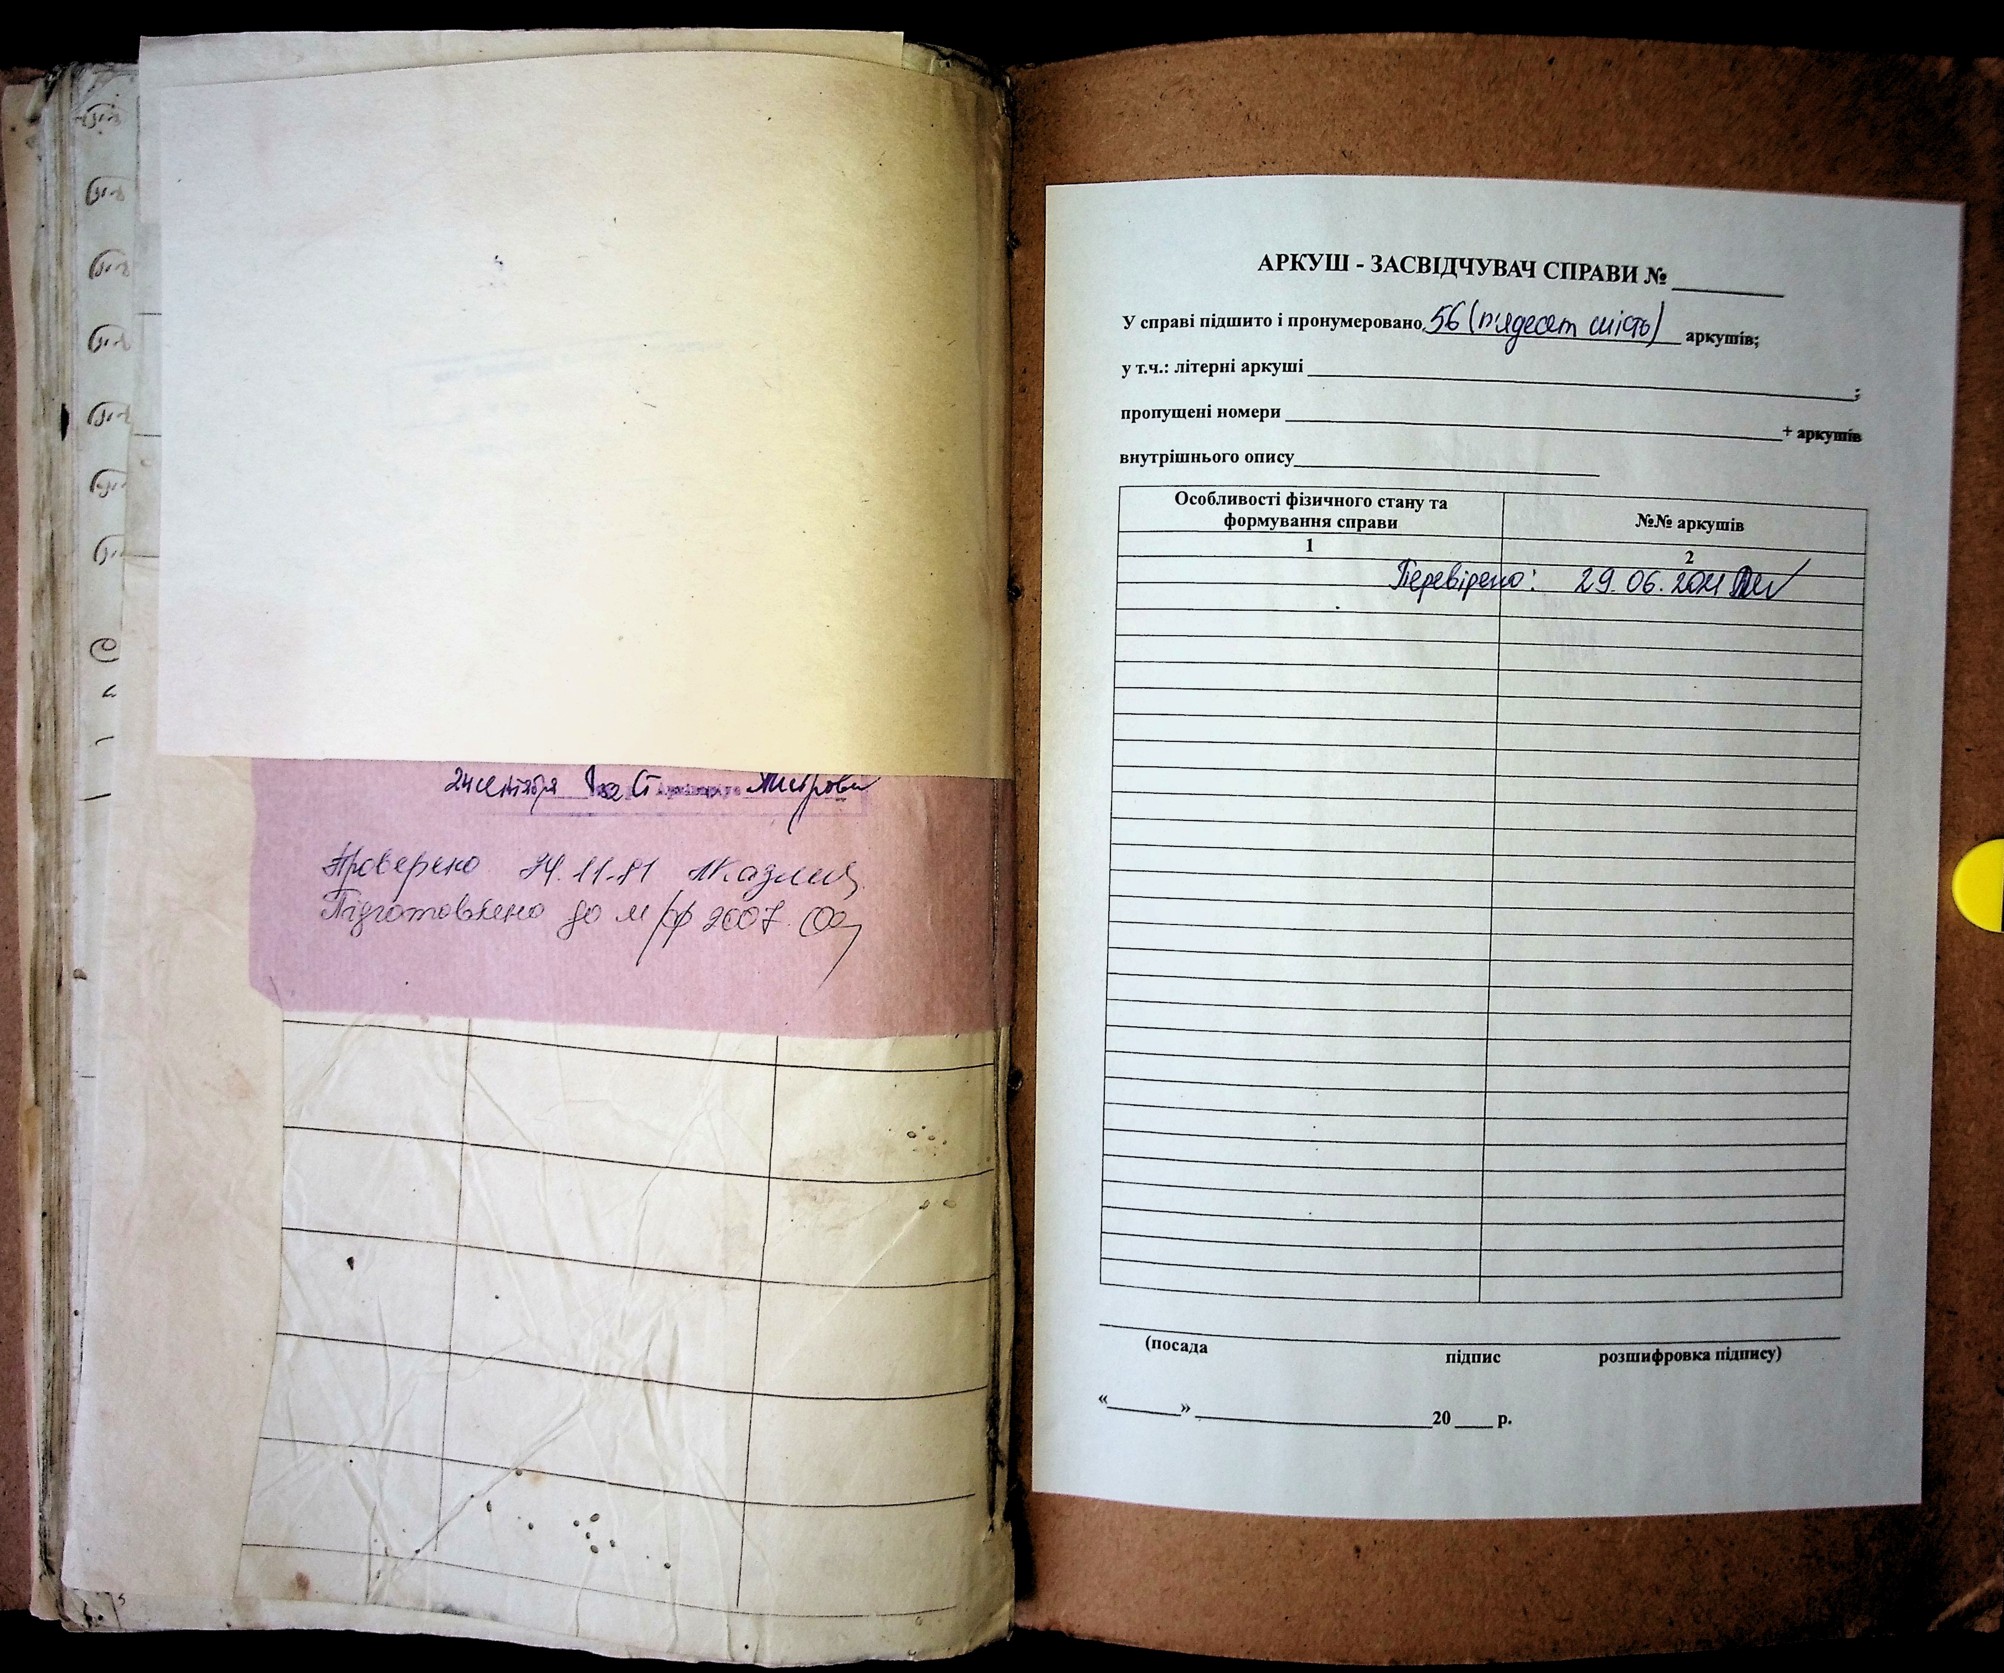 24 сентября
Проверено 24.11.81
Підготовлено до м/ф 2007.
АРКУШ - ЗАСВІДЧУВАЧ СПРАВИ № ________
У справі підшито і пронумеровано 56 (п'ядесет шість) аркушів;
у т.ч.: літерні аркуші ________;
пропущені номери ________+ аркушів
внутрішнього опису________
Особливості фізичного стану та формування справи
№№ аркушів
1
2
Перевірено: 29.06.2021
(посада підпис розшифровка підпису)
«________» ________20 ____ р.